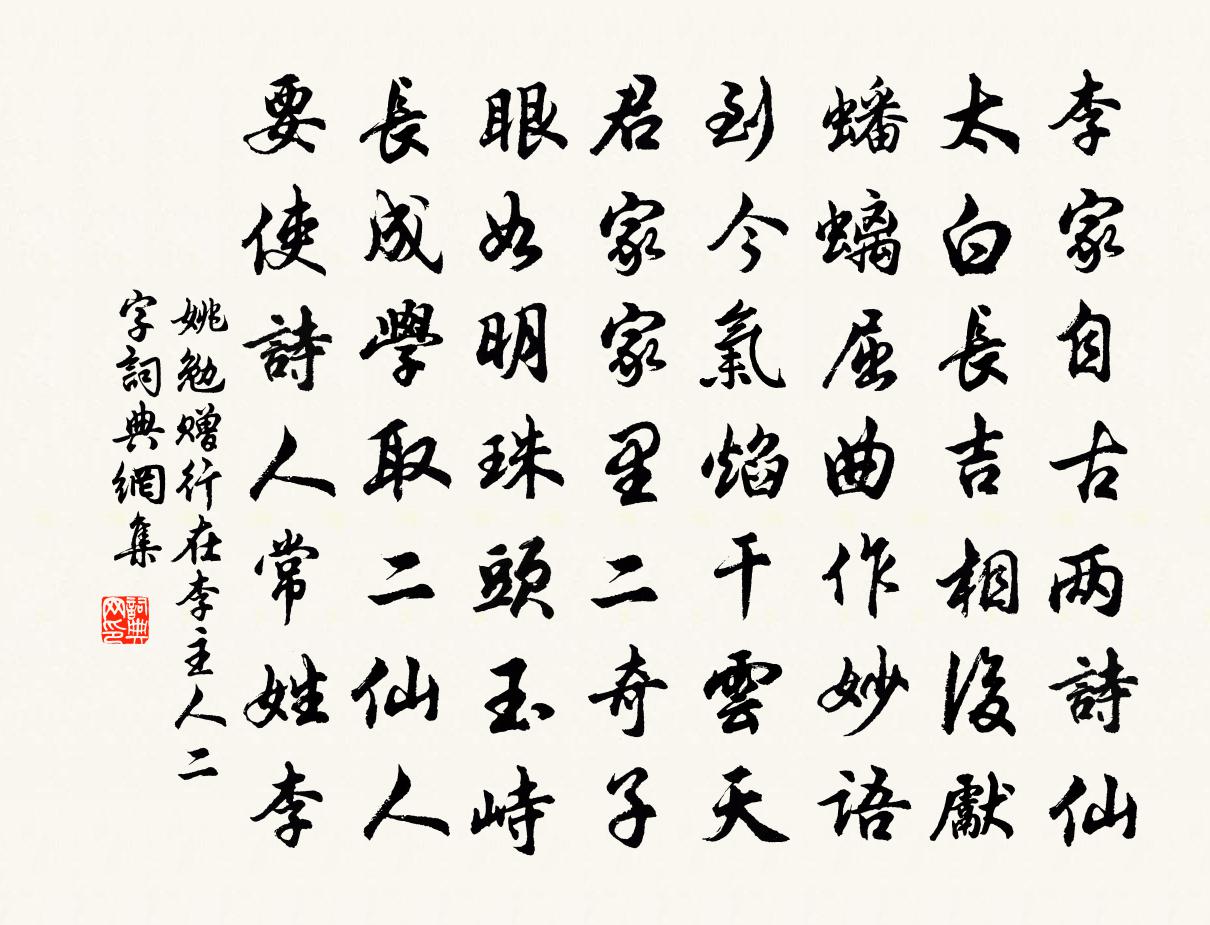 李家自古两詩仙
太白長吉相後獻
蟠螭屈曲作妙語
到今氣焰干雲天
君家家里二奇子
眼如明珠頭玉峙
長成學取二仙人
要使詩人常姓李
姚勉赠行在李主人二
字詞典網集
詞典
网印